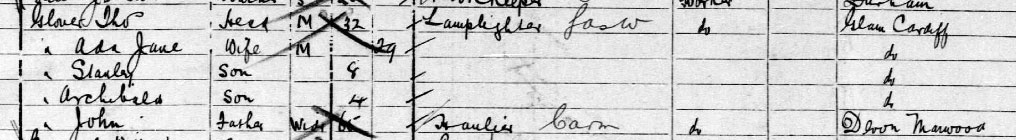 Glover Thos Head M 32 Lamplighter Gasw do Glam Cardiff
" Ada Jane Wife M 29 do
" Stanley Son 8 do
" Archibald Son 4 do
" John Father Widr 65 Haulier Carm do Devon Marwood